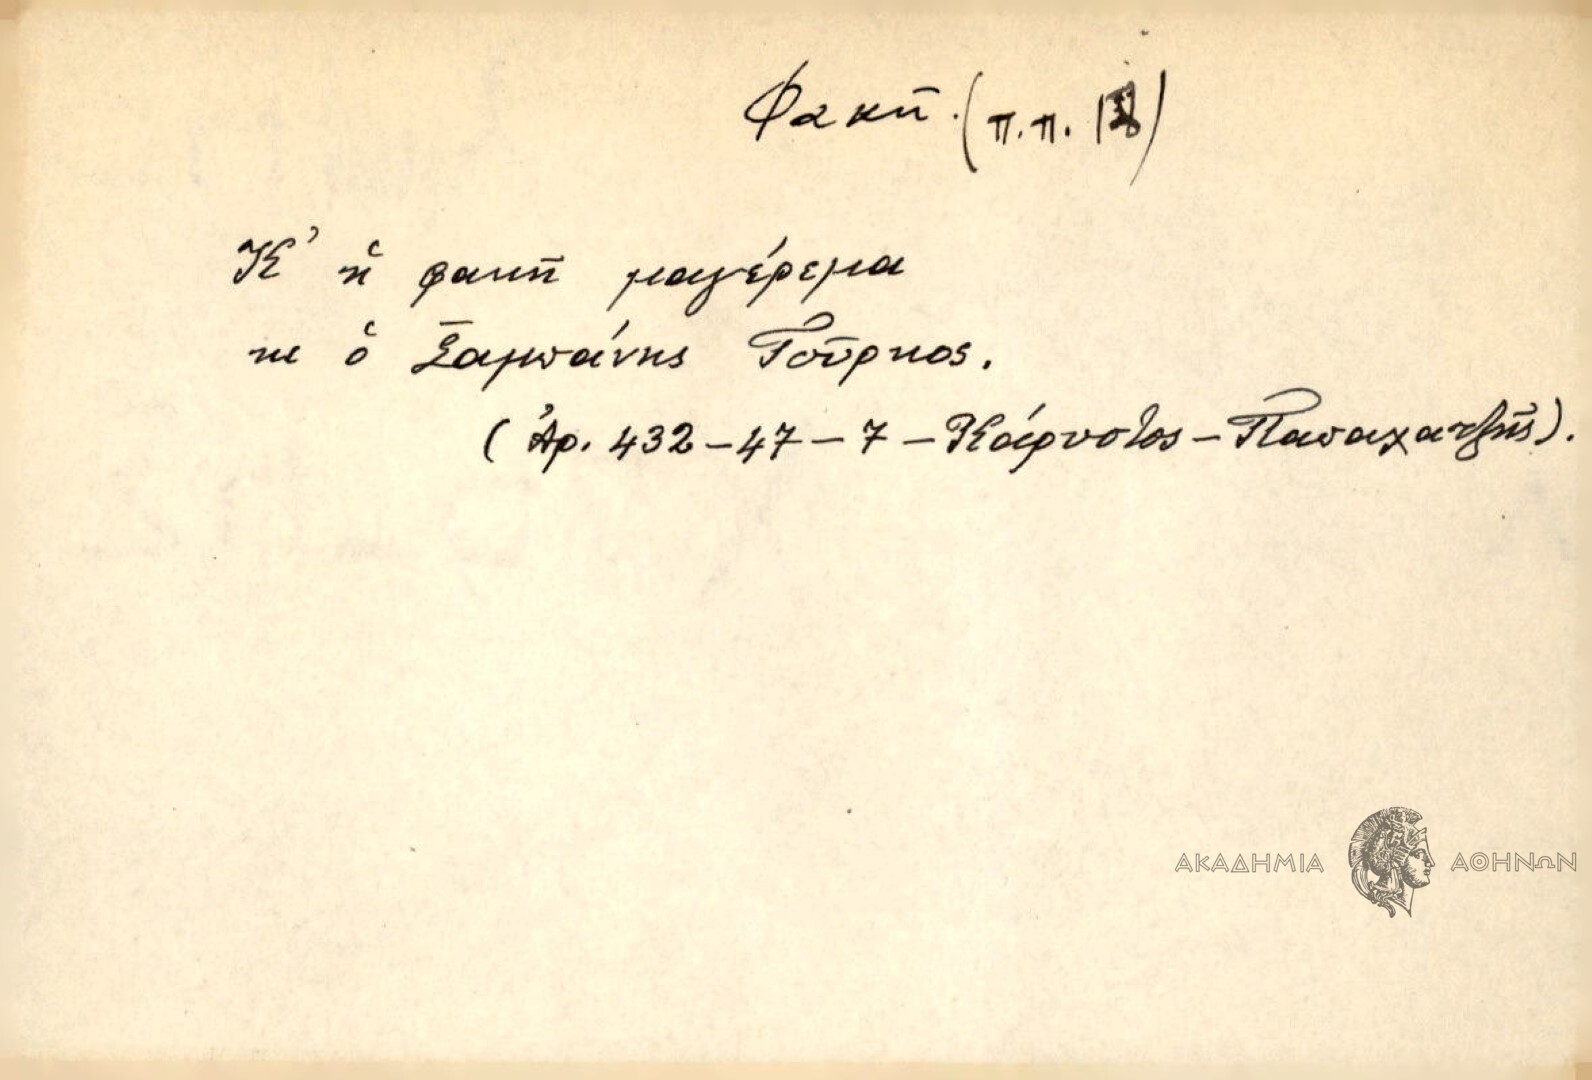 Φακῆ. (π.π. 1
Κ' ἡ φακῆ μαγέρεμα
κι ὁ Σαμπάνης Τοῦρκος.
(Ἀρ. 432-47-7-Κάρυστος-Παπαχατζῆς).
ΑΚΑΔΗΜΙΑ ΑΘΗΝΩΝ